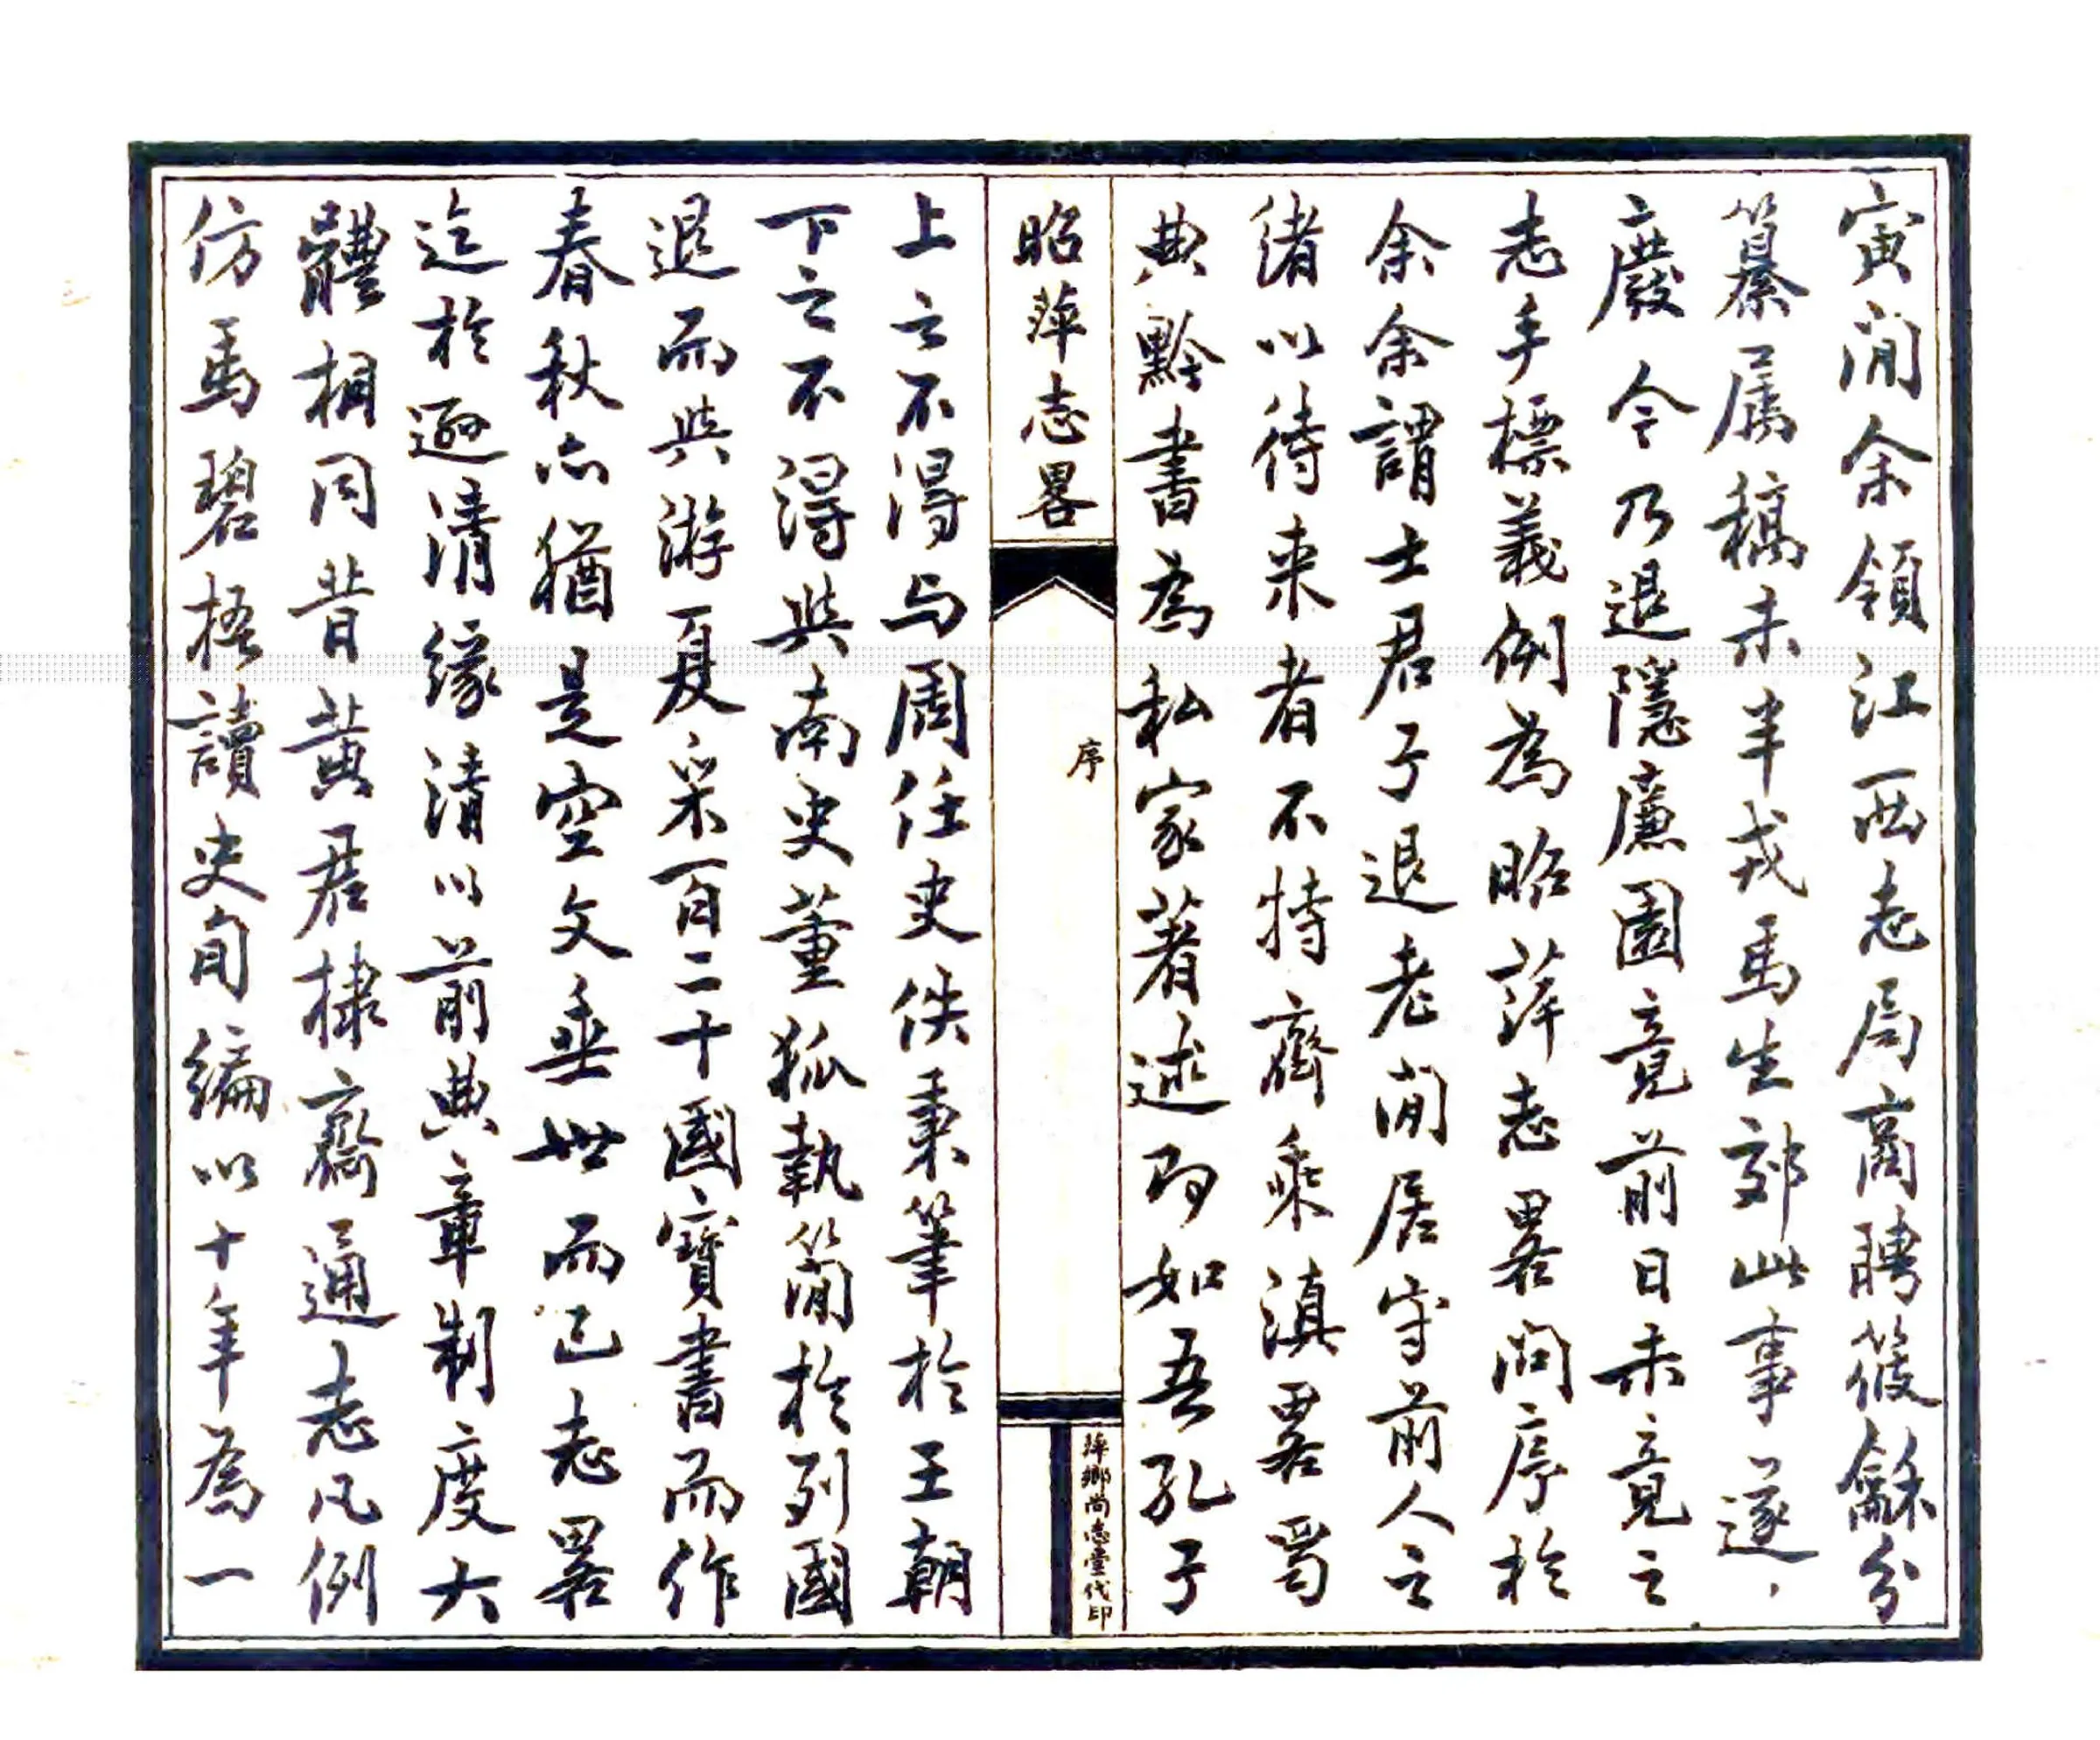 寅間余領江西志局商聘筱龢分
纂属稿未半戎馬生郊此事遂
廢今乃退隱廉園竟前日未竟之
志手標義例為昭萍志畧問序於
余余謂士君子退老閒居守前人之
緒以待来者不特齊乘滇畧蜀
典黔書為私家著述即如吾孔子
昭萍志畧
序
萍鄉尚志堂代印
上之不得与周任史佚秉筆於王朝
下之不得與南史董狐執簡於列國
退而與游夏采百二十國寶書而作
春秋亦猶是空文垂世而已志畧
迄於遜清緣清以前典章制度大
體相同昔黄君棣齋通志凡例
仿馬碧梧讀史旬編以十年為一